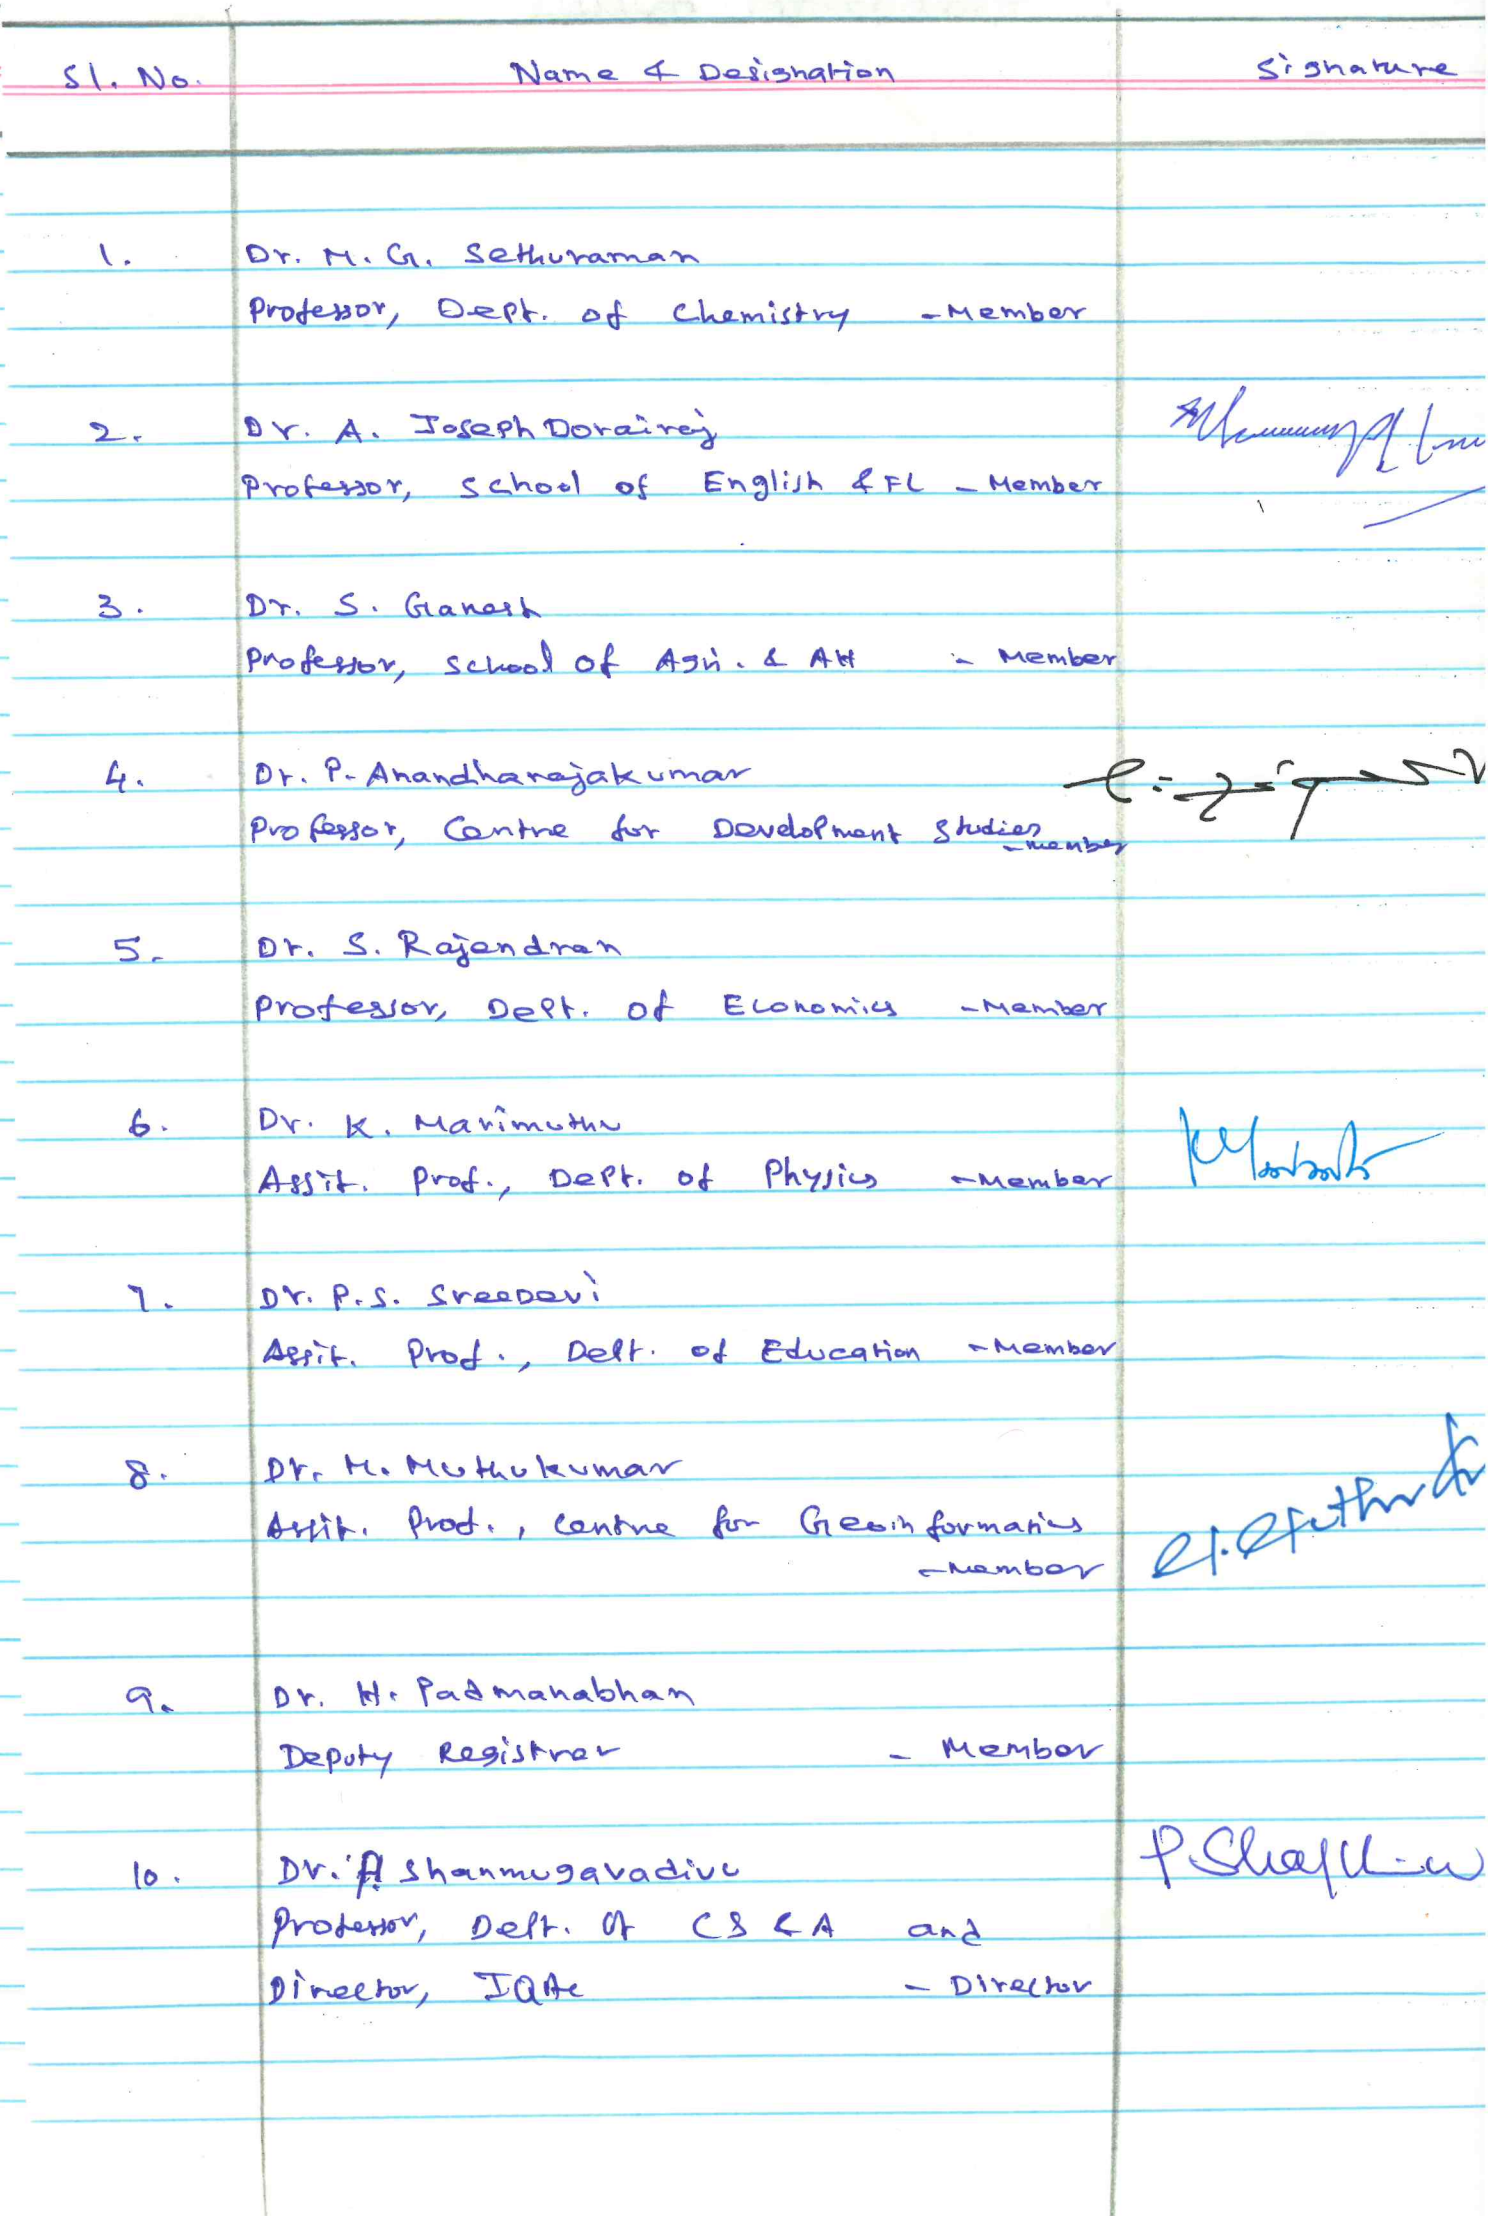 Sl. No. Name & Designation Signature
1. Dr. M. G. Sethuraman
Professor, Dept. of Chemistry - Member
2. Dr. A. Joseph Dorairaj
Professor, School of English & FL - Member
3. Dr. S. Ganesh
Professor, School of Agri. & AH - Member
4. Dr. P. Anandharajakumar
Professor, Centre for Development Studies
- member
5. Dr. S. Rajendran
Professor, Dept. of Economics - Member
6. Dr. K. Marimuthu
Assit. Prof., Dept. of Physics - Member
7. Dr. P.S. SreeDevi
Assit. Prof., Dept. of Education - Member
8. Dr. M. Muthukumar
Assit. Prof., Centre for Geoinformatics
- Member
9. Dr. H. Padmanabhan
Deputy Registrar - Member
10. Dr. Shanmugavadivu
Professor, Dept. of CS & A and
Director, IQAC - Director